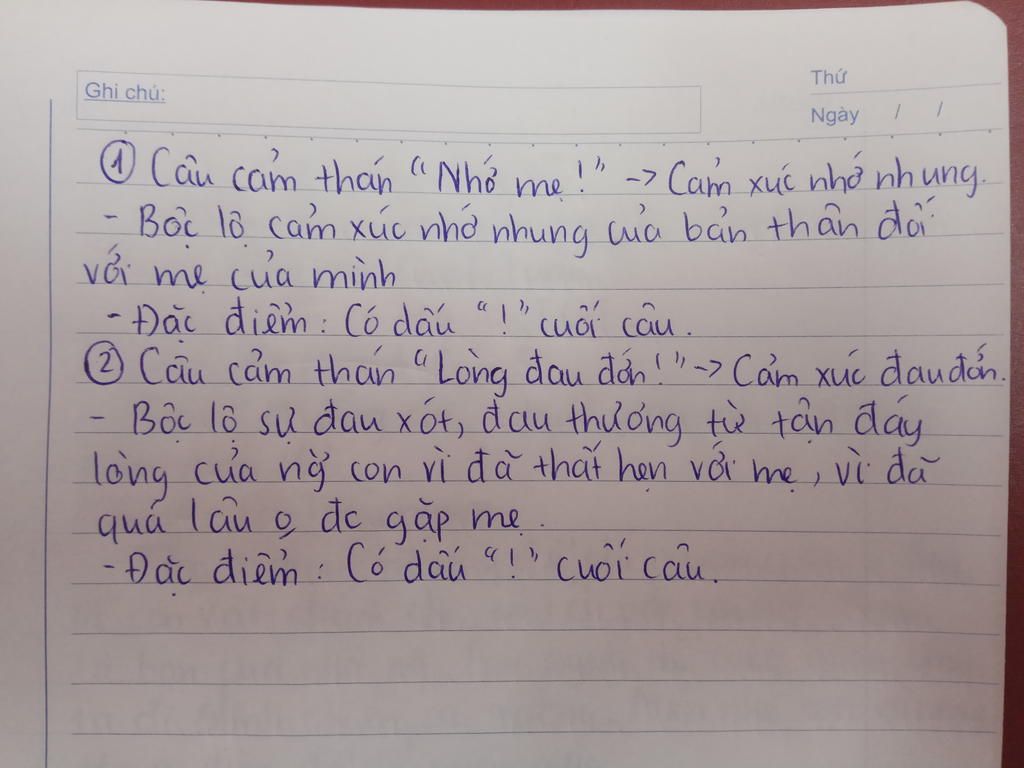 Ghi chú:
Thứ
Ngày / /
① Câu cảm thán "Nhớ mẹ!" -> Cảm xúc nhớ nhung.
- Bộc lộ cảm xúc nhớ nhung của bản thân đối
với mẹ của mình
- Đặc điểm: Có dấu "!" cuối câu.
② Câu cảm thán "Lòng đau đớn!" -> Cảm xúc đau đớn.
- Bộc lộ sự đau xót, đau thương từ tận đáy
lòng của ng` con vì đã thất hẹn với mẹ, vì đã
quá lâu o đc gặp mẹ.
- Đặc điểm: Có dấu "!" cuối câu.